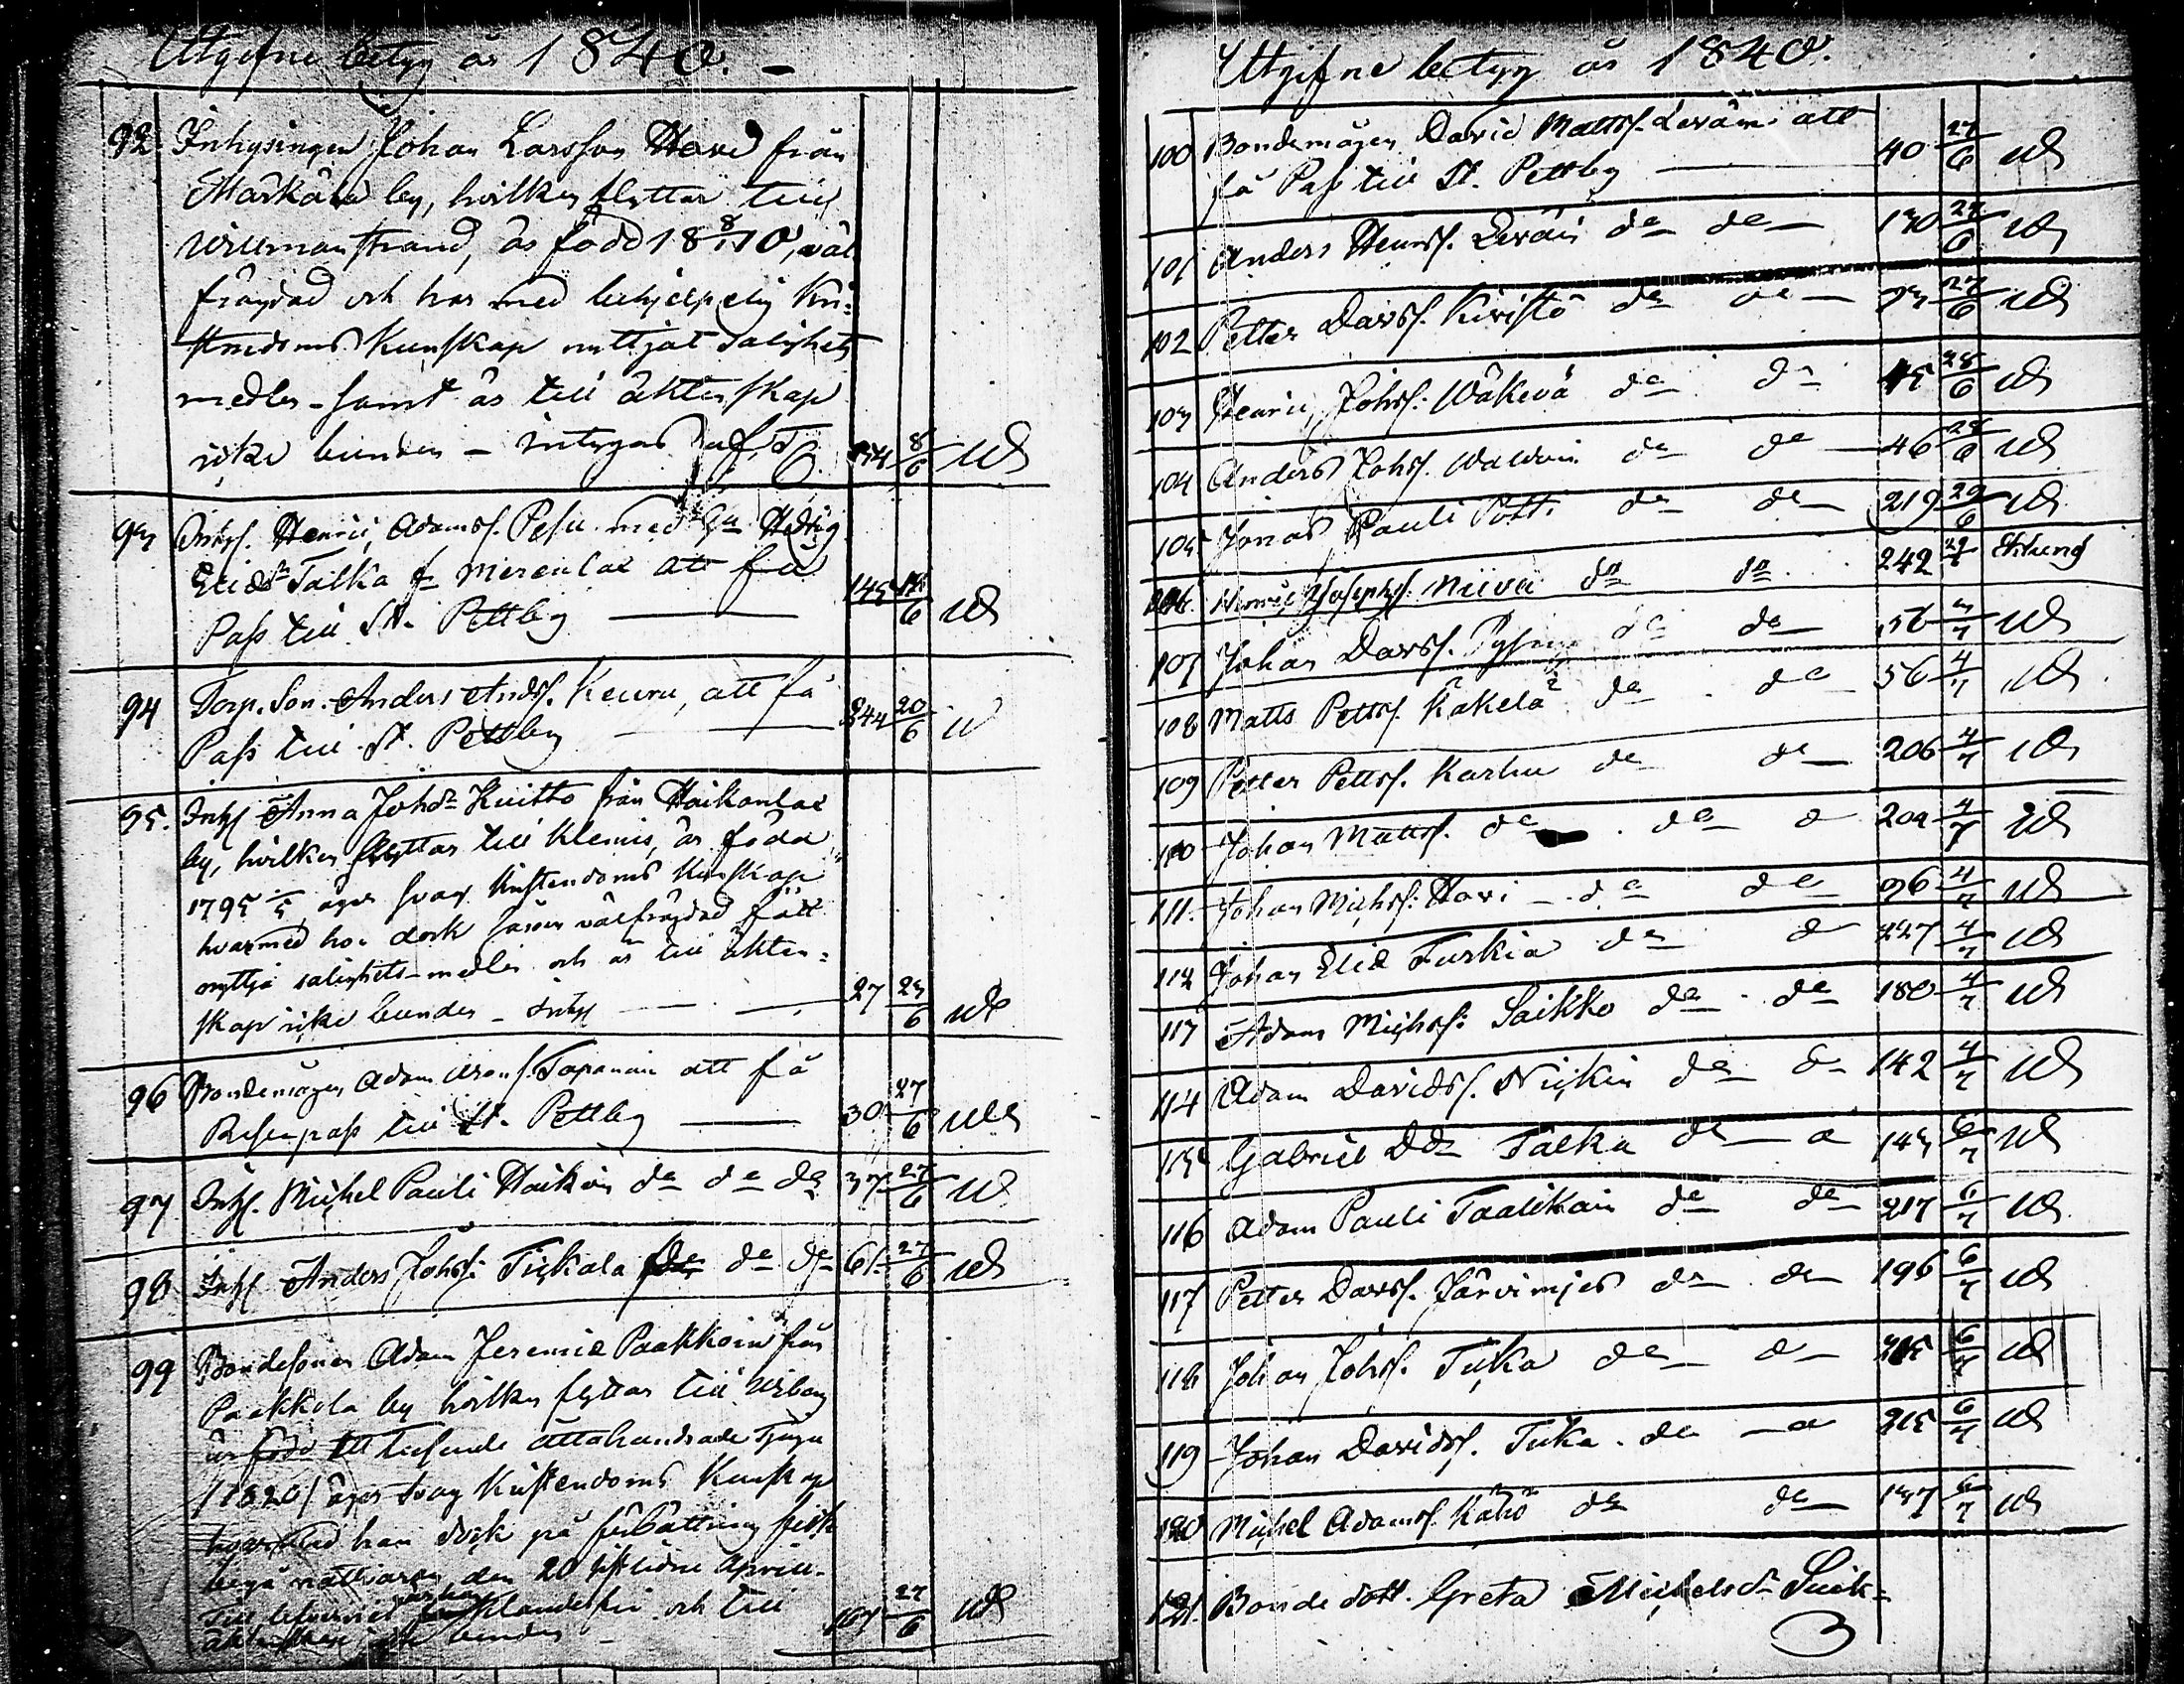 Utgifne betyg år 1840. -
92. Inhysingen Johan Larsson Havo från
Märkälä by, hvilken flyttar till
Willmanstrand, är född 18 8/11 10, väl
frägdad och har med behjelpelig Kri-
stendoms Kunskap nyttjat salighets
medlen - samt är till äktenskap
icke bunden - intygas af, 8/6 W
93 Inhys. Henric Adamss. Pesu med Hedvig
Eliæ Talka fr Merenlax att få
Pass till St. Pettbg 145 6 W
94 Torp. Son. Anders Andss. Keuru, att få
Pass till St. Pettbg 244 20/6 W
95. Inhys Anna Johdr Kuitto från Haikanlax
by, hvilken flyttar till Klemis, är född
1795, äger svag Kristendoms Kunskap
hvarmed hon dock såsom välfrägdad fått
nyttja salighets-medlen och är till äkten-
skap icke bunden - Inhys 27 23/6 W
96 Bondemågen Adam Tapanain att få
Resepass till St. Pettbg 30 27/6 W
97 Inhys. Michel Pauli Haikoin do do do 37 27/6 W
98 Inhys Anders Johss. Tickala do do 61 27/6 W
99 Bondesonen Adam Jeremiæ Paakkoin från
Paakkola by hvilken flyttar till Wiborg
är född Ett Tusende åttahundrade Tjugu
/1820/ äger svag Kristendoms Kunskap
hvarmed han dock på förbättring fick
begå nattvarden den 20 sistlidne April.
Till lefvernet är han klanderfri och till
äktenskap icke bunden - 167 27/6 W
Utgifne betyg år 1840.
100 Bondemågen David Mattss. Leväin att
få Pass till St. Pettbg 40 27/6 W
101 Anders Henrss. Leväin do do 27/6 W
102 Petter Davss. Kiristö do do 27/6 W
103 Henric Johss. Wäkevä do do 45 28/6 W
104 Anders Johss. do do 46 28/6 W
105 Jonas Pauli Potti do do 219 29/6 W
106. Henric Josephss. Niiva do do 242 29 Eklund
107 Johan Davss. do do 56 W
108 Matts Pettss. Käkelä do do 56 4/7 W
109 Petter Pettss. Karhu do do 206 4/7 W
110 Johan Mattss. do do do 204 4/7 W
111. Johan Michss. Havi do do 96 4/7 W
112 Johan Eliæ Turkia do do 227 4/7 W
113 Adam Michss. Saikko do do 180 4/7 W
114 Adam Davidss. Nickin do do 142 4/7 W
115 Gabriel Talka do do 143 6/7 W
116 Adam Pauli Taalikain do do 217 6/7 W
117 Petter Davss. Järvimjes do do 196 6/7 W
118 Johan Johss. Tiika do do 215 6/7 W
119 Johan Davidss. Tiika do do 215 6/7 W
120 Michel Adamss. Kähö do do 137 6/7 W
121. Bonde dott. Greta Michelsdr Suik-